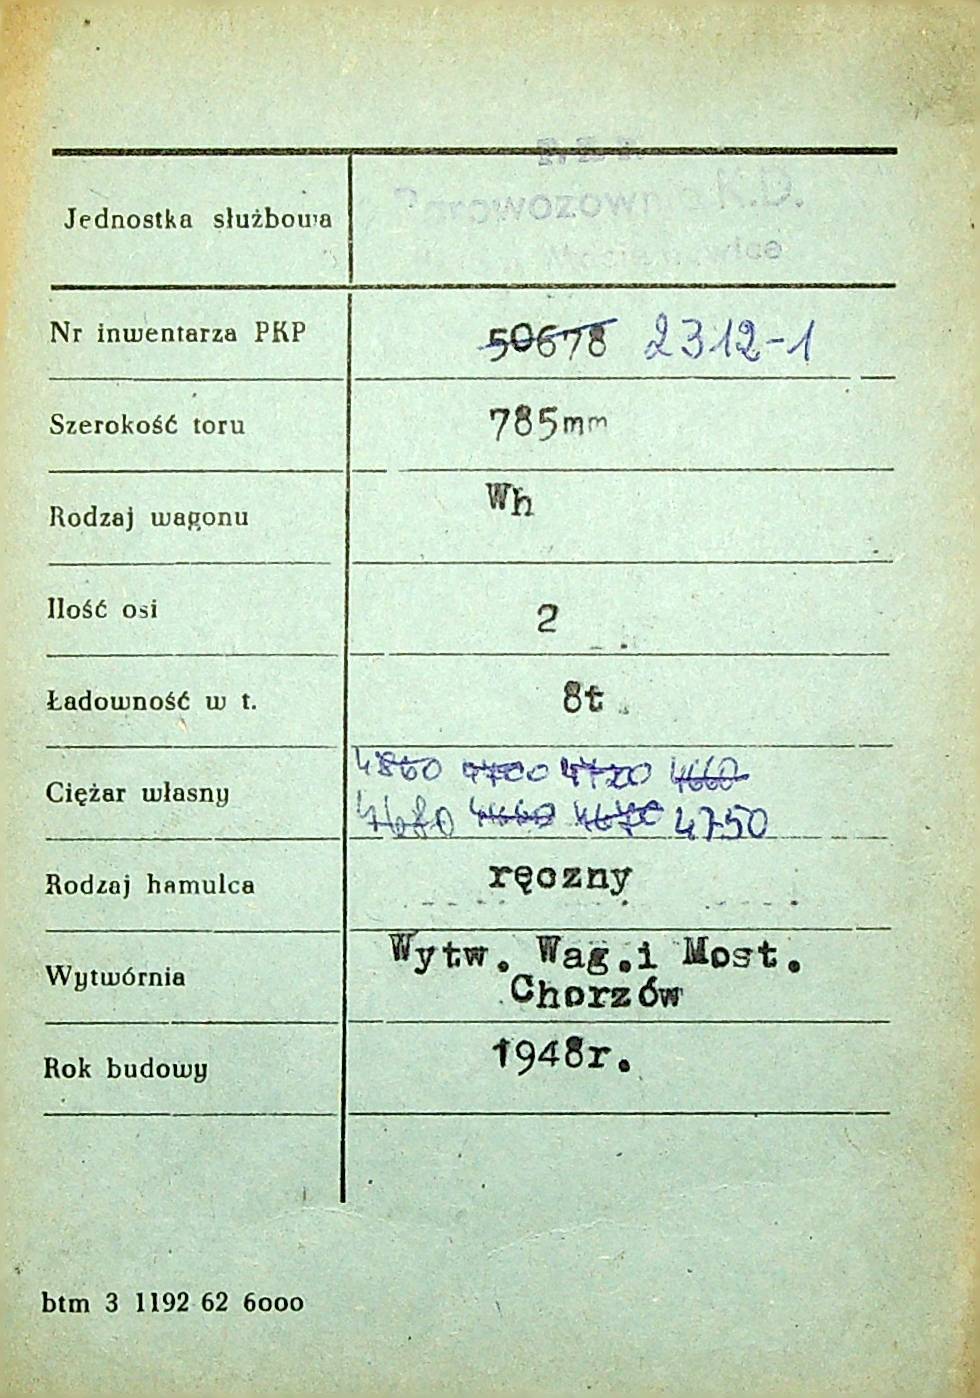 Parowozownia K.D.
Jednostka służbowa
Nr inwentarza PKP 50678 2312-1
Szerokość toru 785mm
Rodzaj wagonu Wh
Ilość osi 2
Ładowność w t. 8t
4860 4700 4720 4660
Ciężar własny
4680 4660 4670 4750
Rodzaj hamulca ręczny
Wytwórnia Wytw. Wag.i Most.
Chorzów
Rok budowy 1948r.
btm 3 1192 62 6000